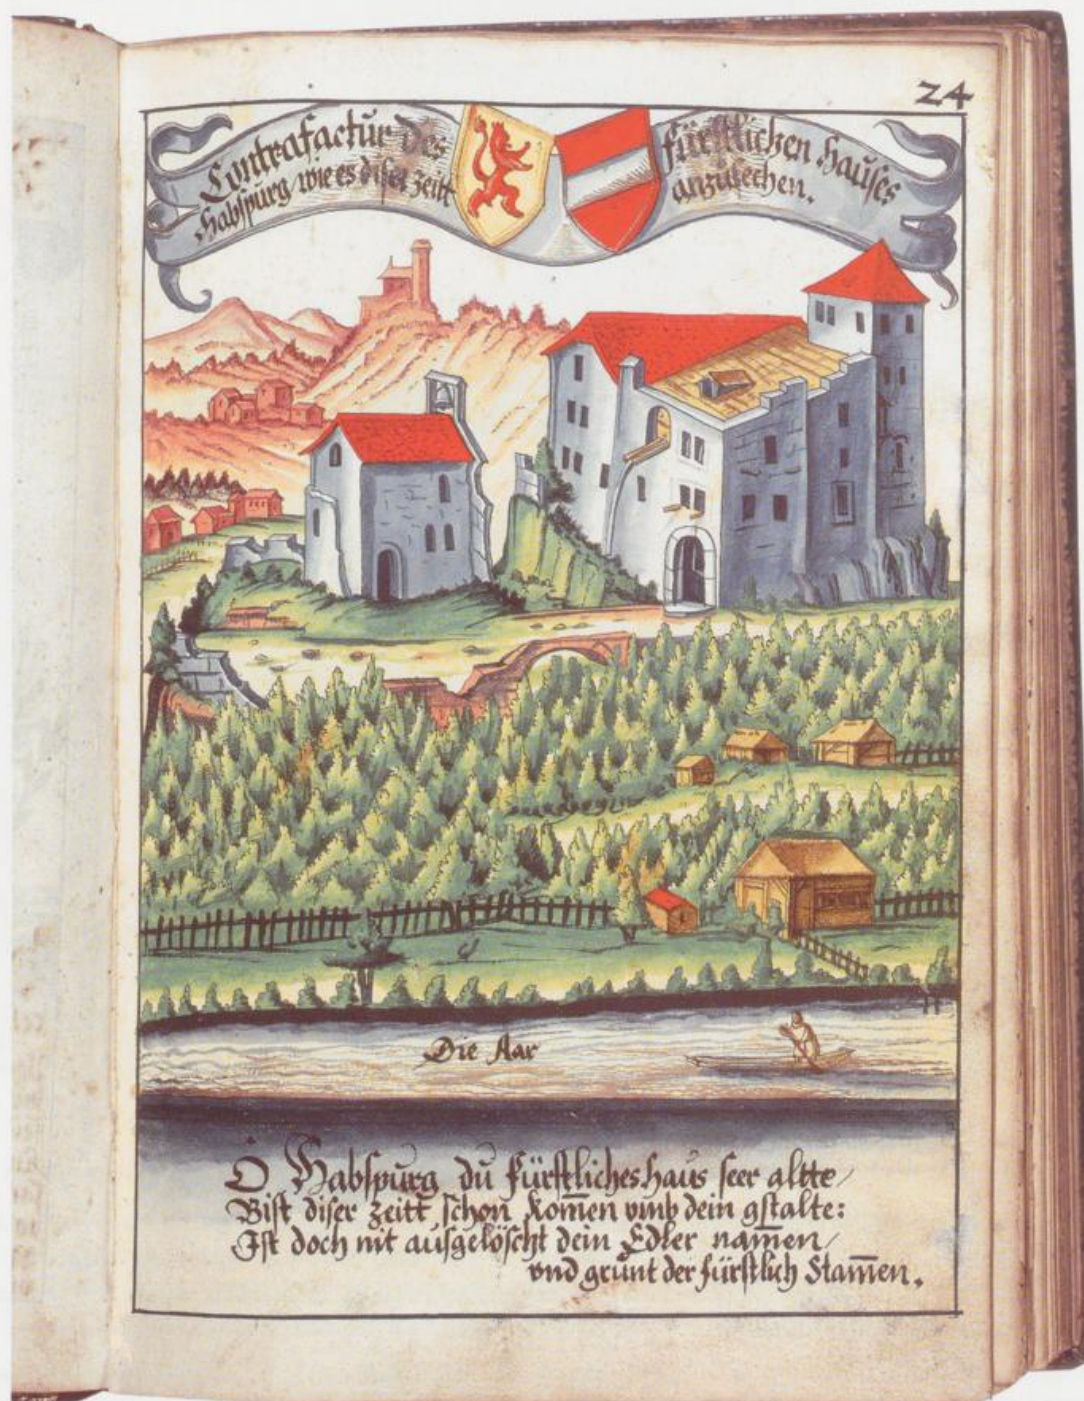 24
Contrafactur des fürstlichen Hauses
Habspurg / wie es diser zeitt anzusechen.
Die Aar
O Habspurg du fürstliches haus seer altte /
Bist diser zeitt schon kom̄en vmb dein gstalte:
Ist doch nit ausgelöscht dein Edler nam̄en /
vnd grünt der fürstlich Stam̄en.